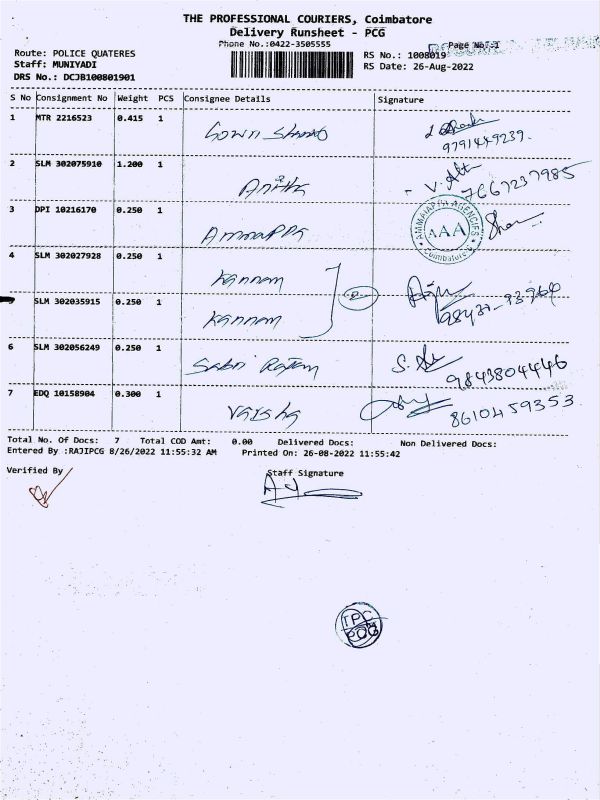 THE PROFESSIONAL COURIERS, Coimbatore
Delivery Runsheet - PCG
Phone No.:0422-3505555
Page No.:1
Route: POLICE QUATERES
RS No.: 1008019
Staff: MUNIYADI
RS Date: 26-Aug-2022
DRS No.: DCJB100801901
S No Consignment No Weight PCS Consignee Details Signature
1 MTR 2216523 0.415 1
9791449239.
2 SLM 302075910 1.200 1 Anitha
7667237985
3 DPI 10216170 0.250 1
AMMAIAPPA AGENCIES
AAA
Coimbatore
4 SLM 302027928 0.250 1 Kannam
2
SLM 302035915 0.250 1 Kannam
6 SLM 302056249 0.250 1
9843804446
7 EDQ 10158904 0.300 1
8610459353
Total No. Of Docs: 7 Total COD Amt: 0.00 Delivered Docs: Non Delivered Docs:
Entered By :RAJIPCG 8/26/2022 11:55:32 AM Printed On: 26-08-2022 11:55:42
Verified By Staff Signature
TPC
PCG